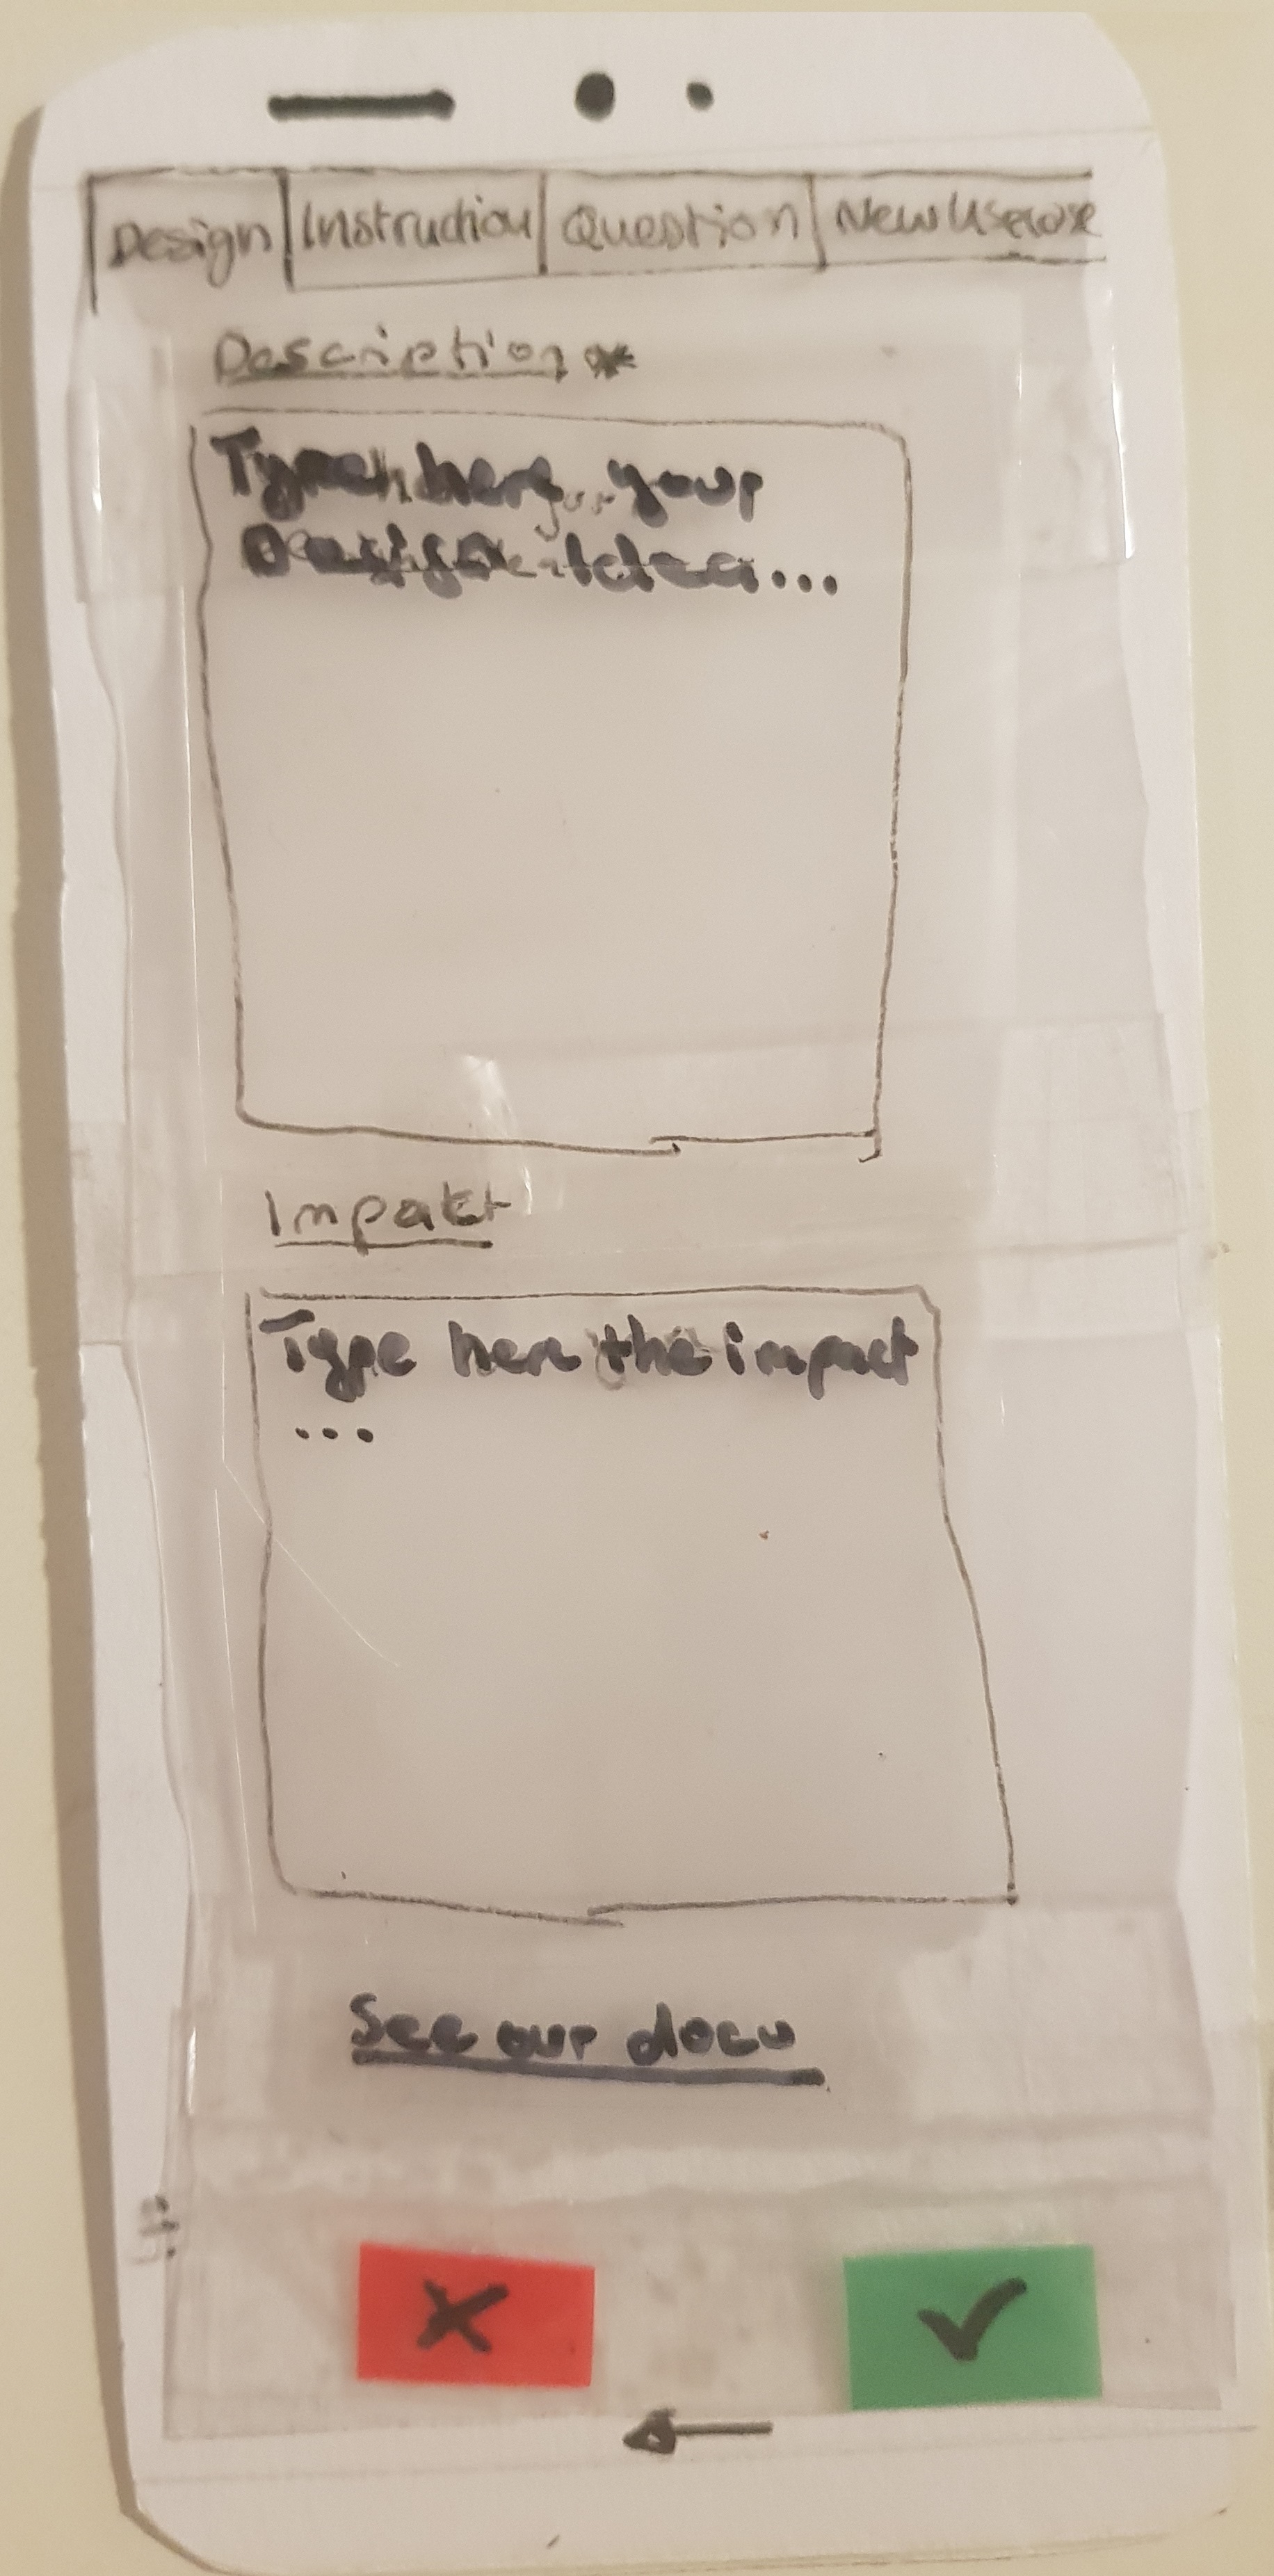 Design Instruction Question New Usecase
Description*
Type here your
Design Idea...
Impakt
Type here the impact
...
See our docu